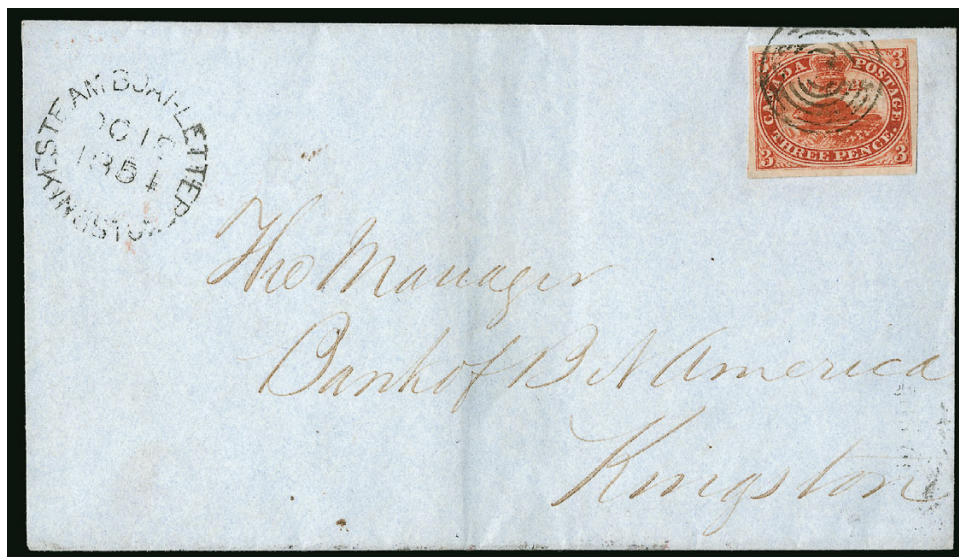 STEAM BOAT-LETTER
OC 1
1851
KINGSTON
3 3
CANADA POSTAGE
3 THREE PENCE. 3
The Manager
Bank of B N America
Kingston